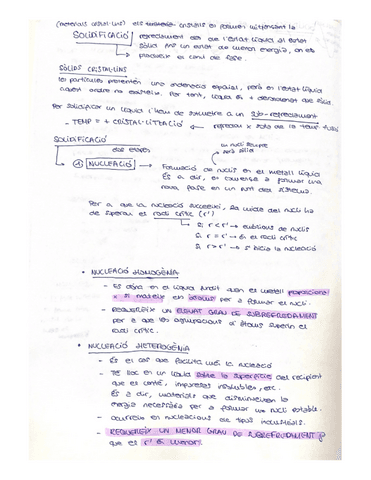 (materials cristal·lins) els
SOLIDIFICACIÓ
refredament des de l'estat líquid al estat
sòlid
per un estat de menor energia, on es
produeix el canvi de fase.
SÒLIDS CRISTAL·LINS
les partícules presenten una ordenació espaial, però en l'estat líquid
aquest ordre no existeix. Per tant, líquid és + desordenat que sòlid.
Per solidificar un líquid l'hem de sotmetre a un sub-refredament
- TEMP = + CRISTAL·LITZACIÓ
refredar x sota de la temp fusió
SOLIDIFICACIÓ
dos etapes
un nucli sempre
serà sòlid
① NUCLEACIÓ
Formació de nuclis en el metall líquid
És a dir, es comença a formar una
nova fase en un punt del sistema.
Per a que la nucleació succeeixi, la mida del nucli ha
de superar el radi crític (r')
Si r < r' → embrions de nuclis
Si r = r' → és el radi crític
Si r > r' → s'inicia la nucleació
• NUCLEACIÓ HOMOGÈNIA
- Es dóna en el líquid quan el metall proporciona
x si mateix els àtoms per a formar el nucli.
- REQUEREIX UN ELEVAT GRAU DE SUBREFREDAMENT
per a que les agrupacions d'àtoms superin el
radi crític.
• NUCLEACIÓ HETEROGÈNIA
- És el cas que facilita més la nucleació
- Té lloc en un líquid sobre la superfície del recipient
que el conté, impureses insolubles, etc.
És a dir, materials que disminueixen la
energia necessària per a formar un nucli estable.
- Ocurreix en nucleacions de tipus industrials.
- REQUEREIX UN MENOR GRAU DE SUBREFREDAMENT
que el r' és menor.